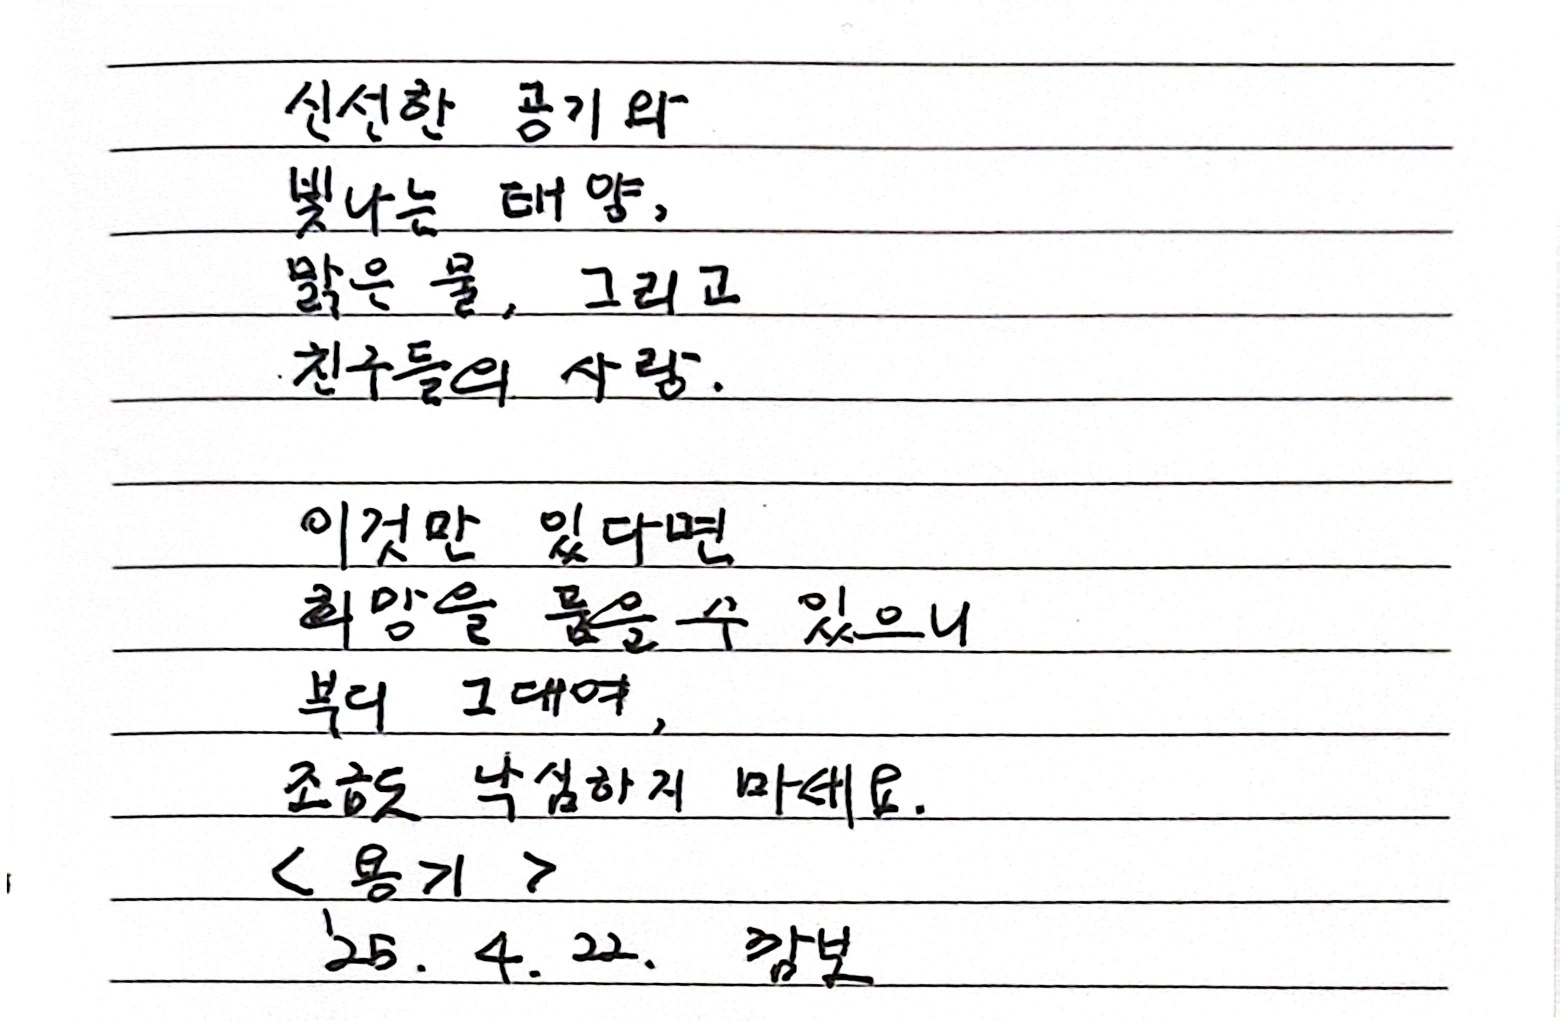 신선한 공기와
빛나는 태양,
맑은 물, 그리고
친구들의 사랑.
이것만 있다면
희망을 품을 수 있으니
부디 그대여,
조금도 낙심하지 마세요.
< 용기 >
'25. 4. 22. 깜보